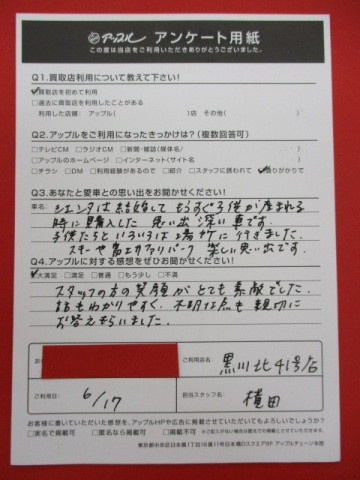 アップル アンケート用紙
この度は当店をご利用いただきありがとうございました。
Q1.買取店利用について教えて下さい!
□買取店を初めて利用
□過去に買取店を利用したことがある
利用した店舗: アップル( )店 その他( )
Q2.アップルをご利用になったきっかけは?(複数回答可)
□テレビCM □ラジオCM □新聞・雑誌(媒体名/ )
□アップルのホームページ □インターネット(サイト名 )
□チラシ □DM □利用経験があるので □紹介 □スタッフに誘われて □通りがかりで
Q3.あなたと愛車との思い出をお聞かせください!
車名: シエンタは結婚してもうすぐ子供が産まれる
時に購入した思い出深い車です。
子供たちといろいろな場所に行きました。
スキーや富士サファリパーク 楽しい思い出です。
Q4.アップルに対する感想をぜひお聞かせください!
□大満足 □満足 □普通 □もう少し □不満
スタッフの方の笑顔がとても素敵でした。
話もわかりやすく、不明な点も親切に
お答えもらいました。
お
ご利用店名: 黒川北41号店
ご利用日: 6/17
担当スタッフ名: 横田
お客様に書いていただいた感想を、アップルHPや広告に掲載させていただいてもよろしいでしょうか?
□実名で掲載可 □匿名なら掲載可 □掲載不可 ※ご記入がない場合は匿名での掲載とさせていただきます。
東京都中央区日本橋1丁目16番11号日本橋Dスクエア5F アップルチェーン本部